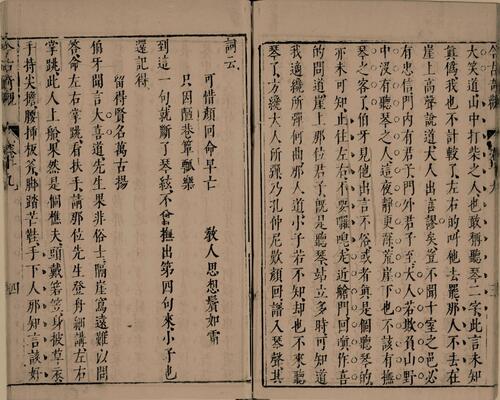 大笑道山中打柴之人也敢稱聽琴二字此言未知
眞僞我也不計較了左右的叫他去罷那人不去在
崖上高聲說道大人出言謬矣豈不聞十室之邑必
有忠信門內有君子門外君子至大人若欺負山野
中沒有聽琴之人這夜靜更深荒崖下也不該有撫
琴之客了伯牙見他出言不俗或者眞是個聽琴的
亦未可知止住左右不要囉唕走近艙門回嗔作喜
的問道崖上那位君子既是聽琴站立多時可知道
我適纔所彈何曲那人道小子若不知却也不來聽
琴了方纔大人所彈乃孔仲尼歎顏回譜入琴聲其
詞云
可惜顏回命早亡 敎人思想鬢如霜
只因陋巷簞瓢樂
到這一句就斷了琴絃不曾撫出第四句來小子也
還記得
留得賢名萬古揚
伯牙聞言大喜道先生果非俗士隔崖窵遠難以問
答命左右掌跳看扶手請那位先生登舟細講左右
掌跳此人上船果然是個樵夫頭戴箬笠身披蓑衣
手持尖擔腰插板斧脚踏芒鞋手下人那知言談好